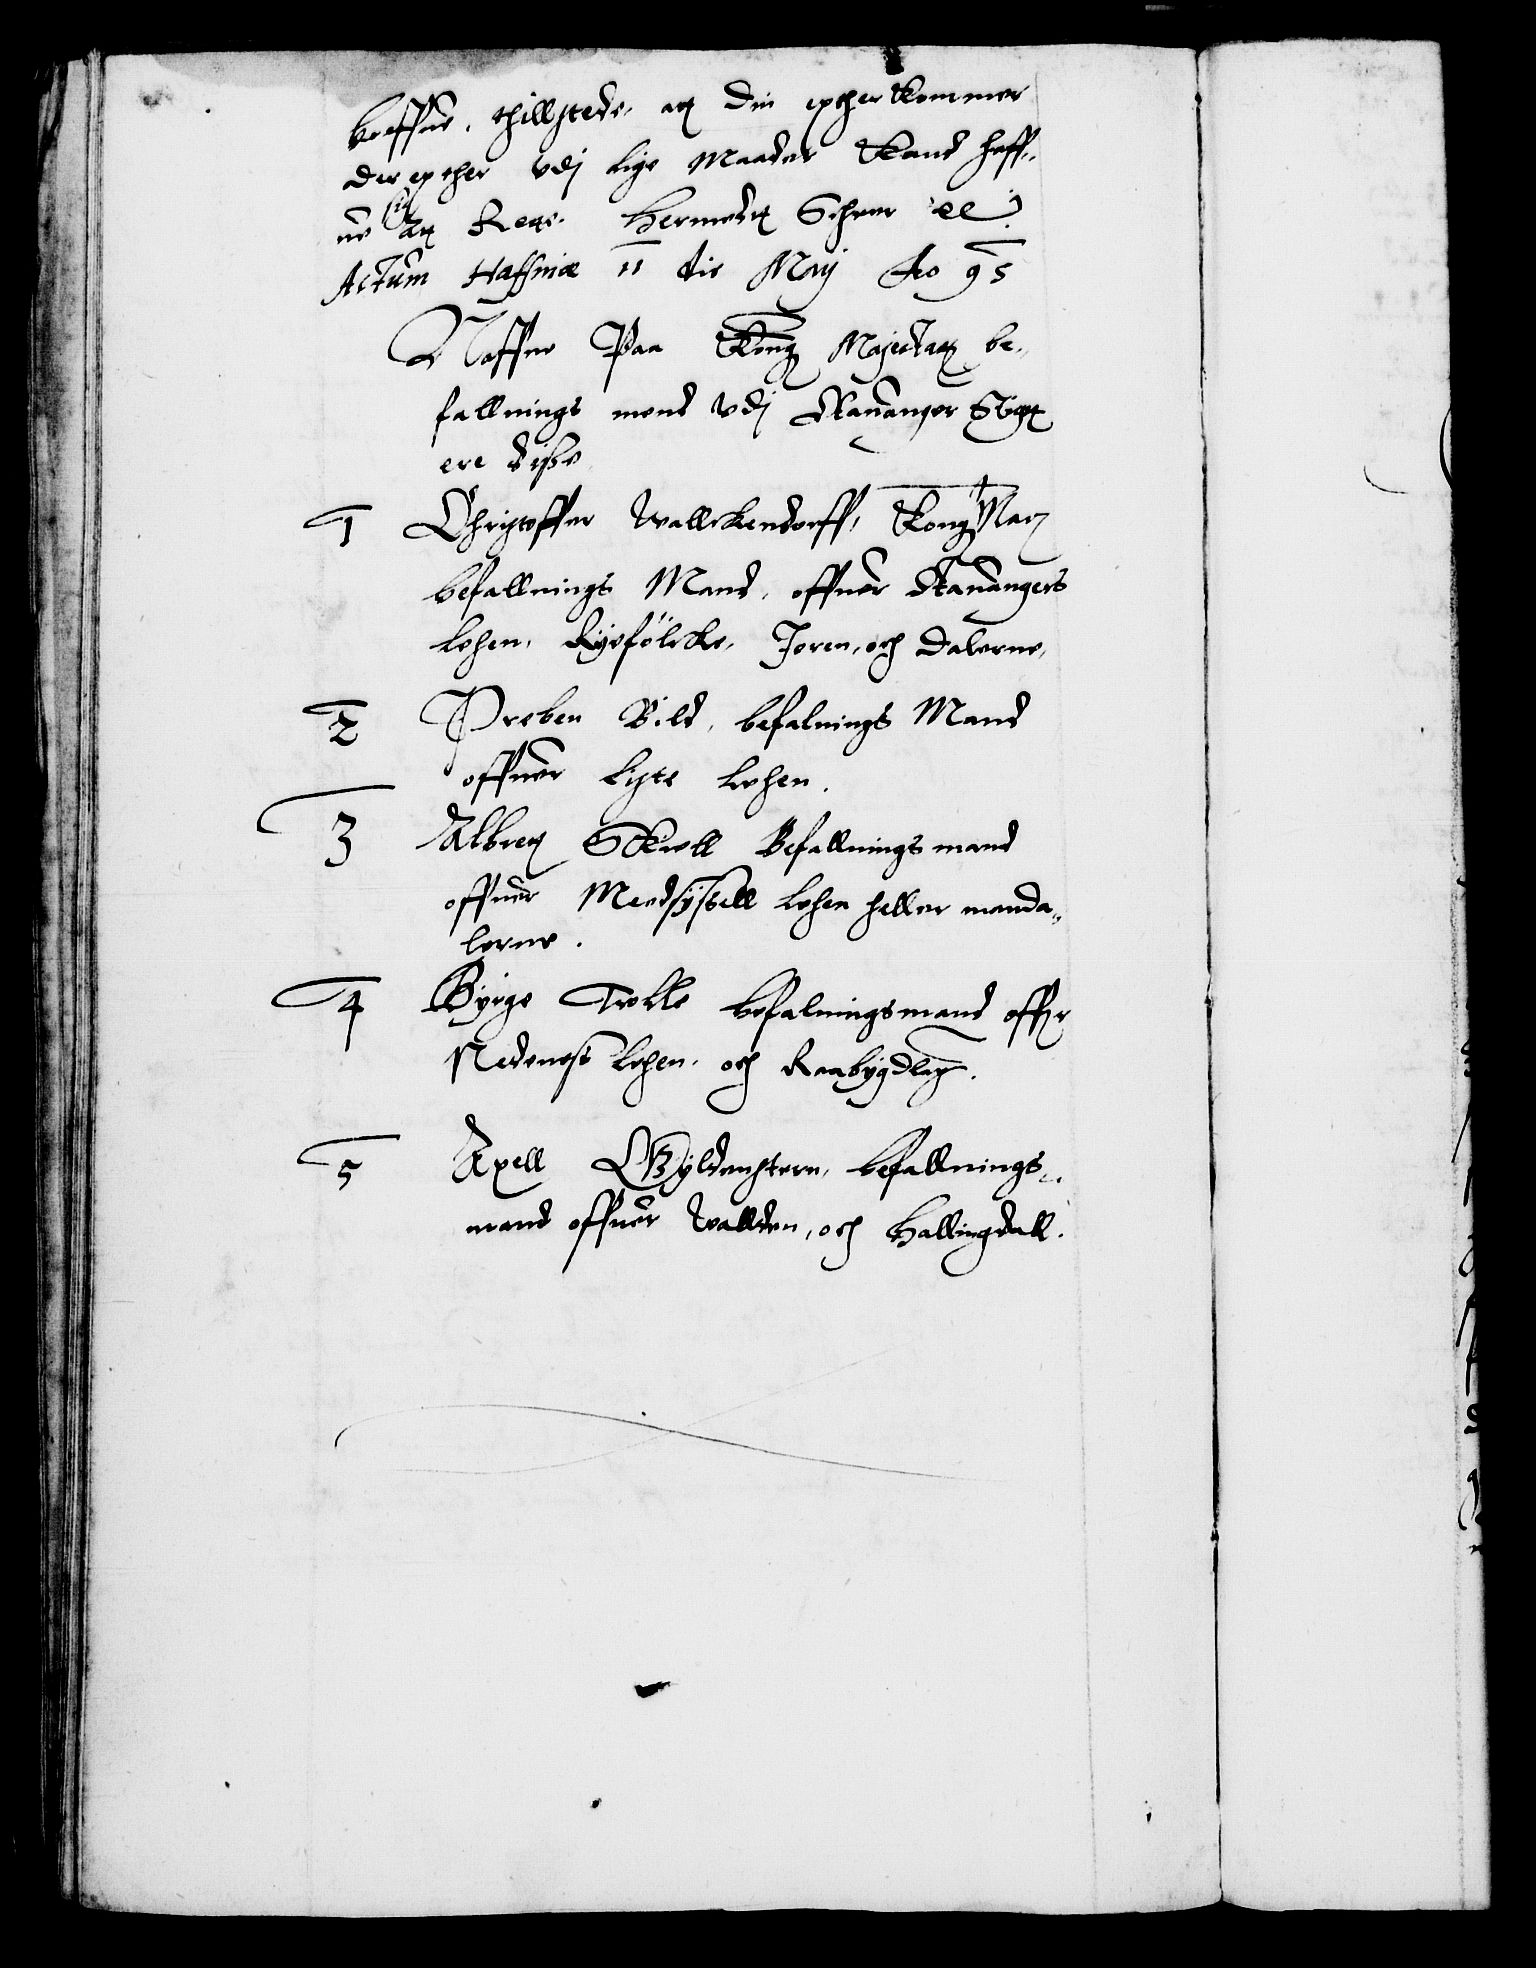 breffue, thillstede, att din epther kommer
der epther vdj lige Maader kand haff,,
ue sig att Rette. Hermedtt Scheer
Actum Haffniæ 11 die Maij Ao 95
Naffne Paa Kong Majestatz be,,
fallnings mend vdj Stauanger Stigt
ere disse
1 Christoffer Wallckendorff, Kong Matz
befallnings Mand, offuer Stauangers
Lehen, Ryefölcke, Jeren, och Dalerne,
2 Preben Bild, befalnings Mand
offuer Liste Lehen.
3 Albret Skeell Befallnings mand
offuer Meedsyssell Lehen heller manda,,
lerne.
4 Byrge Trolle befalningsmand offr
Nedeness Lehen, och Raabygdlag.
5 Axell Gyldenstern, befallnings,,
mand offuer Wallders, och Hallingdall.